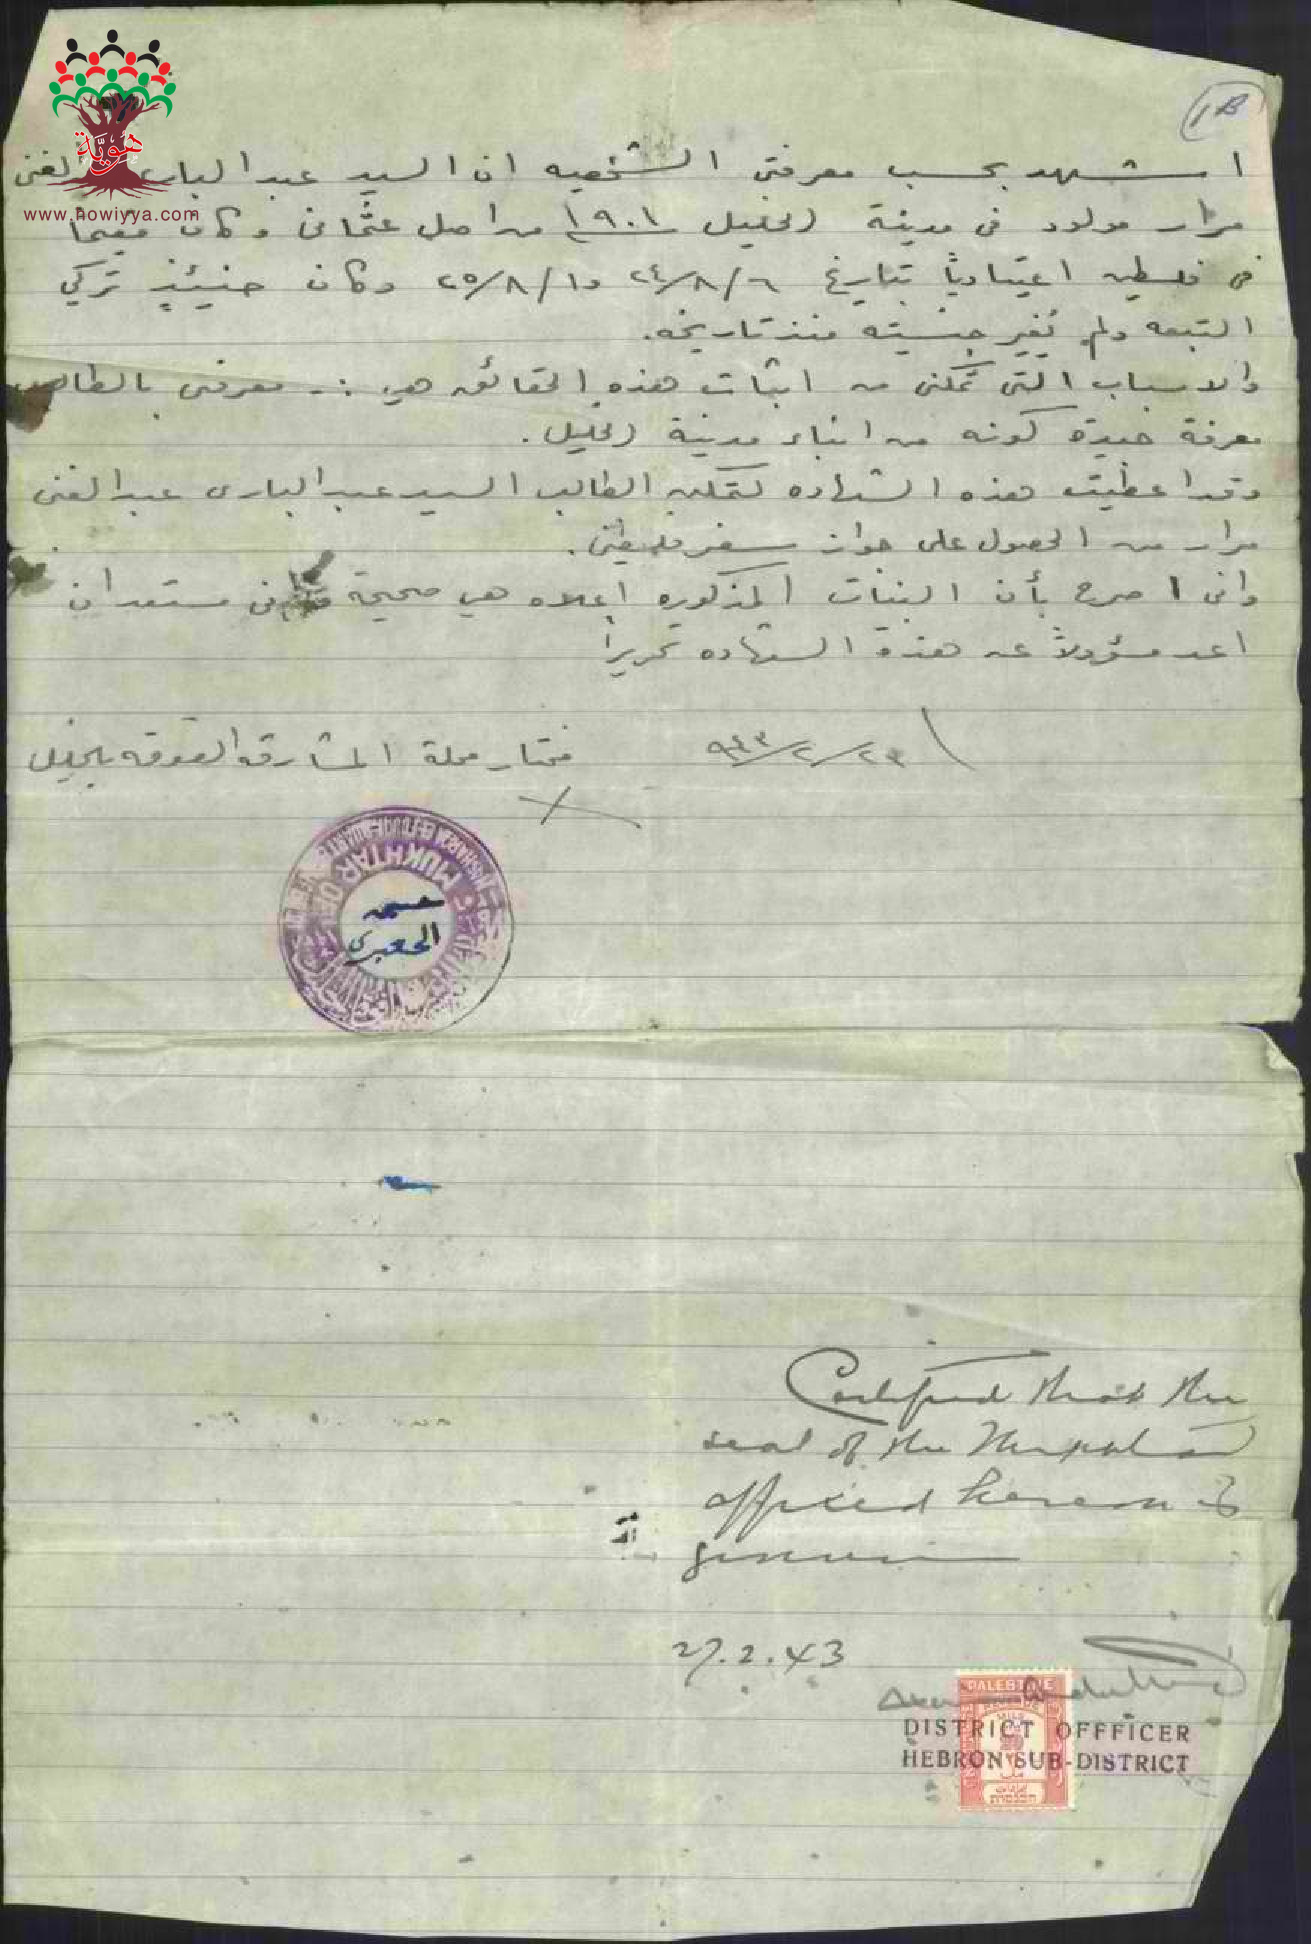 1B
هُوِيَّة
www.howiyya.com
اشهد بحسب معرفتي الشخصيه ان السيد عبد الباري الغني
مرار مولود في مدينة الخليل ١٩٠١ من اصل عثماني وكان مقيماً
في فلسطين اعتيادياً بتاريخ ٢٤/٨/٦ و ٢٥/٨/١ وكان حينئذٍ تركي
التبعه ولم يُغير جنسيته منذ تاريخه.
والاسباب التي تمكنني من اثبات هذه الحقائق هي :- معرفتي بالطالب
معرفة جيدة كونه من ابناء مدينة الخليل.
وقد اعطيت هذه الشهاده لتمكين الطالب السيد عبد الباري عبد الغني
مرار من الحصول على جواز سفر فلسطيني.
واني اصرح بأن البينات المذكوره اعلاه هي صحيحة واني مستعد ان
اعد مسؤولاً عن هذه الشهاده تحريراً
٩٤٣/٢/٢٣
مختار محلة المشارقه الفوقه بالخليل
MUKHTAR OF
الجعبري
Certified that the
seal of the Mukhtar
affixed hereon is
genuine
27.2.43
PALESTINE
REVENUE
MILS
DISTRICT OFFFICER
HEBRON SUB-DISTRICT